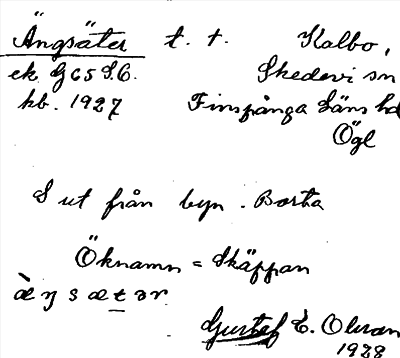 Ängsäter t. t. Kalbo,
ek. G 65 S.O. Skedevi sn
kb. 1927 Finspånga läns hd
Ögl
S ut från byn. Borta
Öknamn = Skäppan
æŋsætər
Gustaf E. Olsson
1928